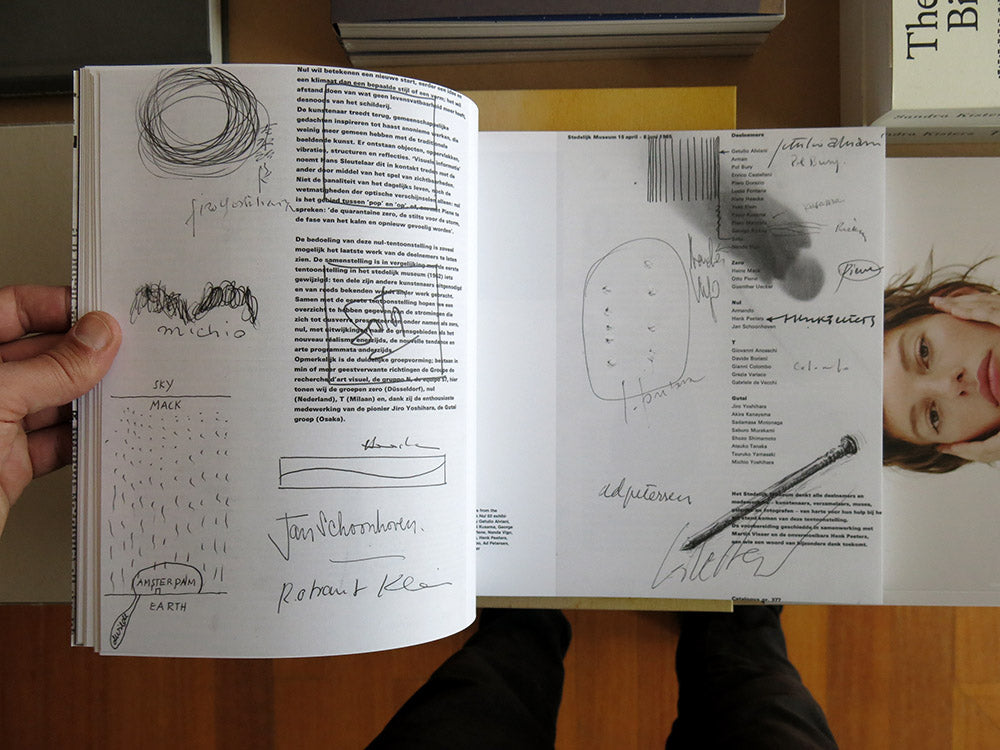 Nul wil betekenen een nieuwe start, eerder een idee en
een klimaat dan een bepaalde stijl of een vorm; het wil
afstand doen van wat geen levensvatbaarheid meer heeft,
desnoods van het schilderij.
De kunstenaar treedt terug, gemeenschappelijke
gedachten inspireren tot haast anonieme werken, die
weinig meer gemeen hebben met de traditionele
beeldende kunst. Er ontstaan objecten, oppervlakken,
vibraties, structuren en reflecties. 'Visuele informatie'
noemt Hans Sleutelaar dit in kontakt treden met de
ander door middel van het spel van zichtbaarheden.
Niet de banaliteit van het dagelijks leven, noch de
wetmatigheden der optische verschijnselen alleen: nul
is het gebied tussen 'pop' en 'op', of, om met Piene te
spreken: 'de quarantaine zero, de stilte voor de storm,
de fase van het kalm en opnieuw gevoelig worden'.
De bedoeling van deze nul-tentoonstelling is zoveel
mogelijk het laatste werk van de deelnemers te laten
zien. De samenstelling is in vergelijking met de eerste
tentoonstelling in het stedelijk museum (1962) iets
gewijzigd: ten dele zijn andere kunstenaars uitgenodigd
en van reeds bekenden wordt ander werk gebracht.
Samen met de eerste tentoonstelling hopen we een
overzicht te hebben gegeven van de stromingen die
zich tot dusverre presenteerden onder namen als zero,
nul, met uitwijkingen naar de grensgebieden als het
nouveau réalisme enerzijds, de nouvelle tendance en
arte programmata anderzijds.
Opmerkelijk is de duidelijke groepvorming; bestaan in
min of meer geestverwante richtingen de Groupe de
recherche d'art visuel, de gruppo N, de equipo 57, hier
tonen wij de groepen zero (Düsseldorf), nul
(Nederland), T (Milaan) en, dank zij de enthousiaste
medewerking van de pionier Jiro Yoshihara, de Gutai
groep (Osaka).
michio
SKY
MACK
AMSTERDAM
EARTH
Soto
Jan Schoonhoven.
Rotraut Klein
Stedelijk Museum 15 april - 8 juni 1965
Deelnemers
Getulio Alviani
Arman
Pol Bury
Enrico Castellani
Piero Dorazio
Lucio Fontana
Hans Haacke
Yves Klein
Yayoi Kusama
Piero Manzoni
George Rickey
Soto
Nanda Vigo
Zero
Heinz Mack
Otto Piene
Guenther Uecker
Nul
Armando
Henk Peeters
Jan Schoonhoven
T
Giovanni Anceschi
Davide Boriani
Gianni Colombo
Grazia Varisco
Gabriele de Vecchi
Gutai
Jiro Yoshihara
Akira Kanayama
Sadamasa Motonaga
Saburo Murakami
Shozo Shimamoto
Atsuko Tanaka
Tsuruko Yamasaki
Michio Yoshihara
getulio alviani
Pol Bury
Kusama
Rickey
Piene
Henk peeters
Nanda Vigo
Colombo
l. fontana
ad petersen
Uecker
Het Stedelijk Museum dankt alle deelnemers en
medewerkers - kunstenaars, verzamelaars, musea,
galeries en fotografen - van harte voor hun hulp bij he
tot stand komen van deze tentoonstelling.
De voorbereiding geschiedde in samenwerking met
Martin Visser en de onvermoeibare Henk Peeters,
aan wie een woord van bijzondere dank toekomt.
Catalogus nr. 377
The
Bi